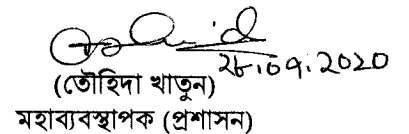 ২৮.০৭.২০২০
(তৌহিদা খাতুন)
মহাব্যবস্থাপক (প্রশাসন)